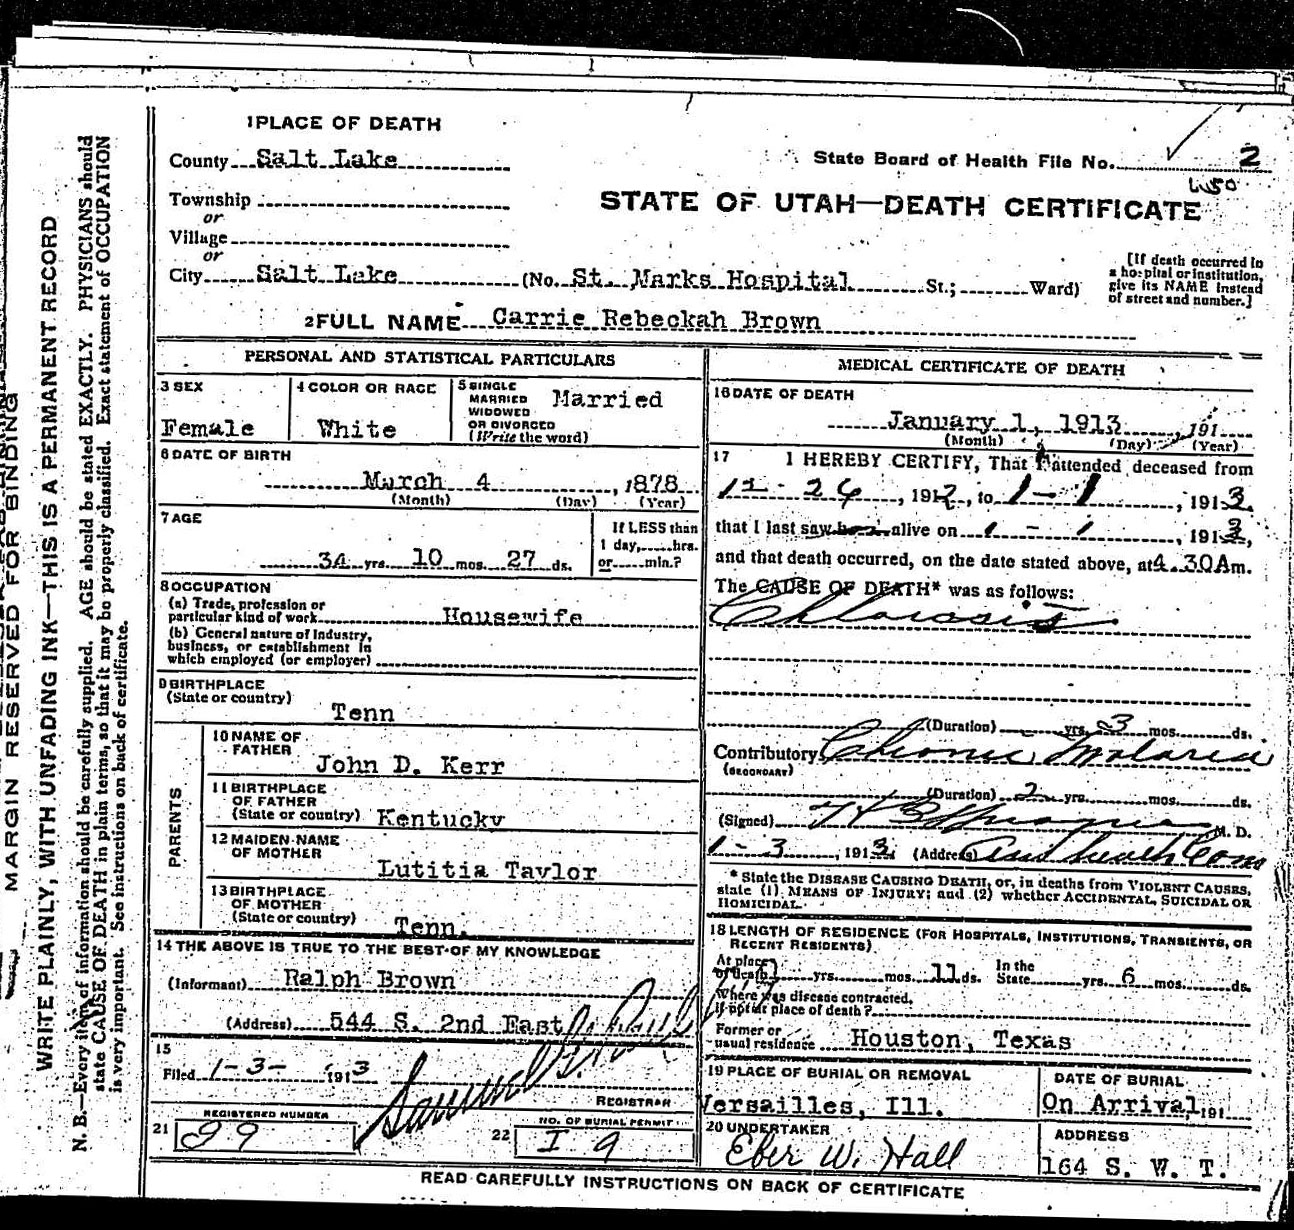 1 PLACE OF DEATH
County Salt Lake
State Board of Health File No. 2
Township
or
Village
or
STATE OF UTAH—DEATH CERTIFICATE
City Salt Lake (No. St. Marks Hospital St.; Ward)
[If death occurred in a hospital or institution, give its NAME instead of street and number.]
2 FULL NAME Carrie Rebeckah Brown
PERSONAL AND STATISTICAL PARTICULARS
3 SEX
Female
4 COLOR OR RACE
White
5 SINGLE
MARRIED
WIDOWED
OR DIVORCED
(Write the word)
Married
6 DATE OF BIRTH
March 4, 1878
(Month) (Day) (Year)
7 AGE
34 yrs. 10 mos. 27 ds.
If LESS than
1 day, hrs.
or min.?
8 OCCUPATION
(a) Trade, profession or
particular kind of work Housewife
(b) General nature of Industry,
business, or establishment in
which employed (or employer)
9 BIRTHPLACE
(State or country)
Tenn
PARENTS
10 NAME OF
FATHER
John D. Kerr
11 BIRTHPLACE
OF FATHER
(State or country) Kentucky
12 MAIDEN NAME
OF MOTHER
Lutitia Taylor
13 BIRTHPLACE
OF MOTHER
(State or country)
Tenn.
14 THE ABOVE IS TRUE TO THE BEST OF MY KNOWLEDGE
(Informant) Ralph Brown
(Address) 544 S. 2nd East
15
Filed 1-3-1913
REGISTRAR
REGISTERED NUMBER
21 29
NO. OF BURIAL PERMIT
22 I 9
MEDICAL CERTIFICATE OF DEATH
16 DATE OF DEATH
January 1, 1913 191
(Month) (Day) (Year)
17 I HEREBY CERTIFY, That I attended deceased from
12-26, 1912, to 1-1, 1913,
that I last saw her alive on 1-1, 1913,
and that death occurred, on the date stated above, at 4.30A m.
The CAUSE OF DEATH* was as follows:
Chlorosis
(Duration) yrs. 3 mos. ds.
Contributory Chronic Malaria
(SECONDARY)
(Duration) 2 yrs. mos. ds.
(Signed) M. D.
1-3, 1913 (Address)
* State the DISEASE CAUSING DEATH, or, in deaths from VIOLENT CAUSES,
state (1) MEANS OF INJURY; and (2) whether ACCIDENTAL, SUICIDAL OR
HOMICIDAL.
18 LENGTH OF RESIDENCE (FOR HOSPITALS, INSTITUTIONS, TRANSIENTS, OR
RECENT RESIDENTS)
At place
of death yrs. mos. 11 ds. In the
State yrs. 6 mos. ds.
Where was disease contracted,
if not at place of death?
Former or
usual residence Houston, Texas
19 PLACE OF BURIAL OR REMOVAL
Versailles, Ill.
DATE OF BURIAL
On Arrival 191
20 UNDERTAKER
Eber W. Hall
ADDRESS
164 S. W. T.
READ CAREFULLY INSTRUCTIONS ON BACK OF CERTIFICATE
MARGIN RESERVED FOR BINDING
WRITE PLAINLY, WITH UNFADING INK—THIS IS A PERMANENT RECORD
N. B.—Every item of information should be carefully supplied. AGE should be stated EXACTLY. PHYSICIANS should
state CAUSE OF DEATH in plain terms, so that it may be properly classified. Exact statement of OCCUPATION
is very important. See instructions on back of certificate.